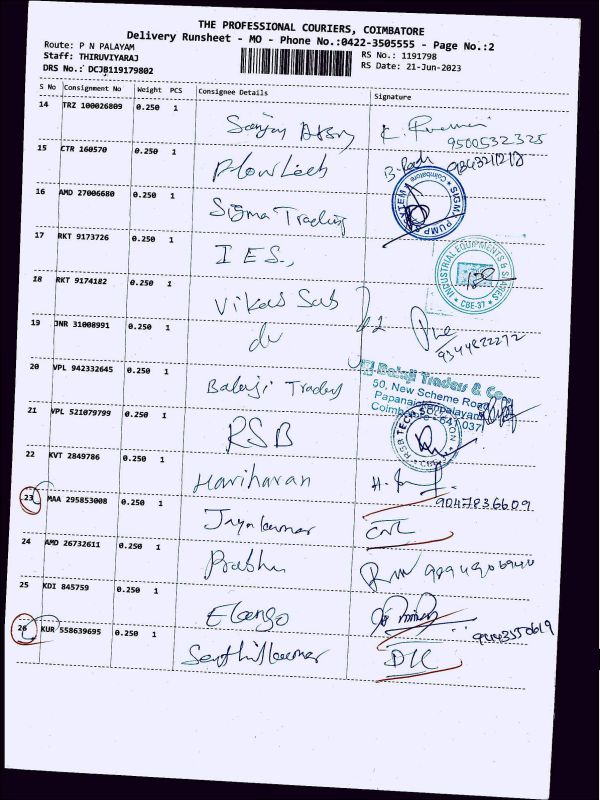 THE PROFESSIONAL COURIERS, COIMBATORE
Delivery Runsheet - MO - Phone No.:0422-3505555 - Page No.:2
Route: P N PALAYAM
Staff: THIRUVIYARAJ
DRS No.: DCJB119179802
RS No.: 1191798
RS Date: 21-Jun-2023
S No Consignment No Weight PCS Consignee Details Signature
14 TRZ 100026809 0.250 1 Sanjay
9500532325
15 CTR 160570 0.250 1 Flowtech
16 AMD 27006680 0.250 1 Sigma Trading
SIGMA PUMP SYTEM * Coimbatore *
17 RKT 9173726 0.250 1 I E S.,
INDUSTRIAL EQUIPMENTS & * CBE-37 *
18 RKT 9174182 0.250 1 Vikas Sales
19 JNR 31008991 0.250 1 do
9344822272
20 VPL 942332645 0.250 1 Balaji Traders
Balaji Traders & Co
50, New Scheme Road
Papanaickenpalayam
Coimbatore - 641 037
21 VPL 521079799 0.250 1 RSB
RSB TECH SOLUTION * CBE
22 KVT 2849786 0.250 1 Hariharan
9047836609
23 MAA 295853008 0.250 1 Jayakumar
24 AMD 26732611 0.250 1 Prabhu
9894906940
25 KDI 845759 0.250 1 Elango
26 KUR 558639695 0.250 1 Senthilkumar DK
9443550619